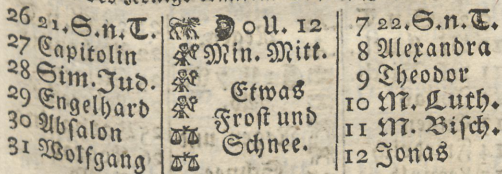 26 21. S. n. T. 0 U. 12 7 22. S. n. T.
27 Capitolin Min. Mitt. 8 Alexandra
28 Sim. Jud. 9 Theodor
29 Engelhard Etwas 10 M. Luth.
30 Absalon Frost und 11 M. Bisch.
31 Wolfgang Schnee. 12 Jonas